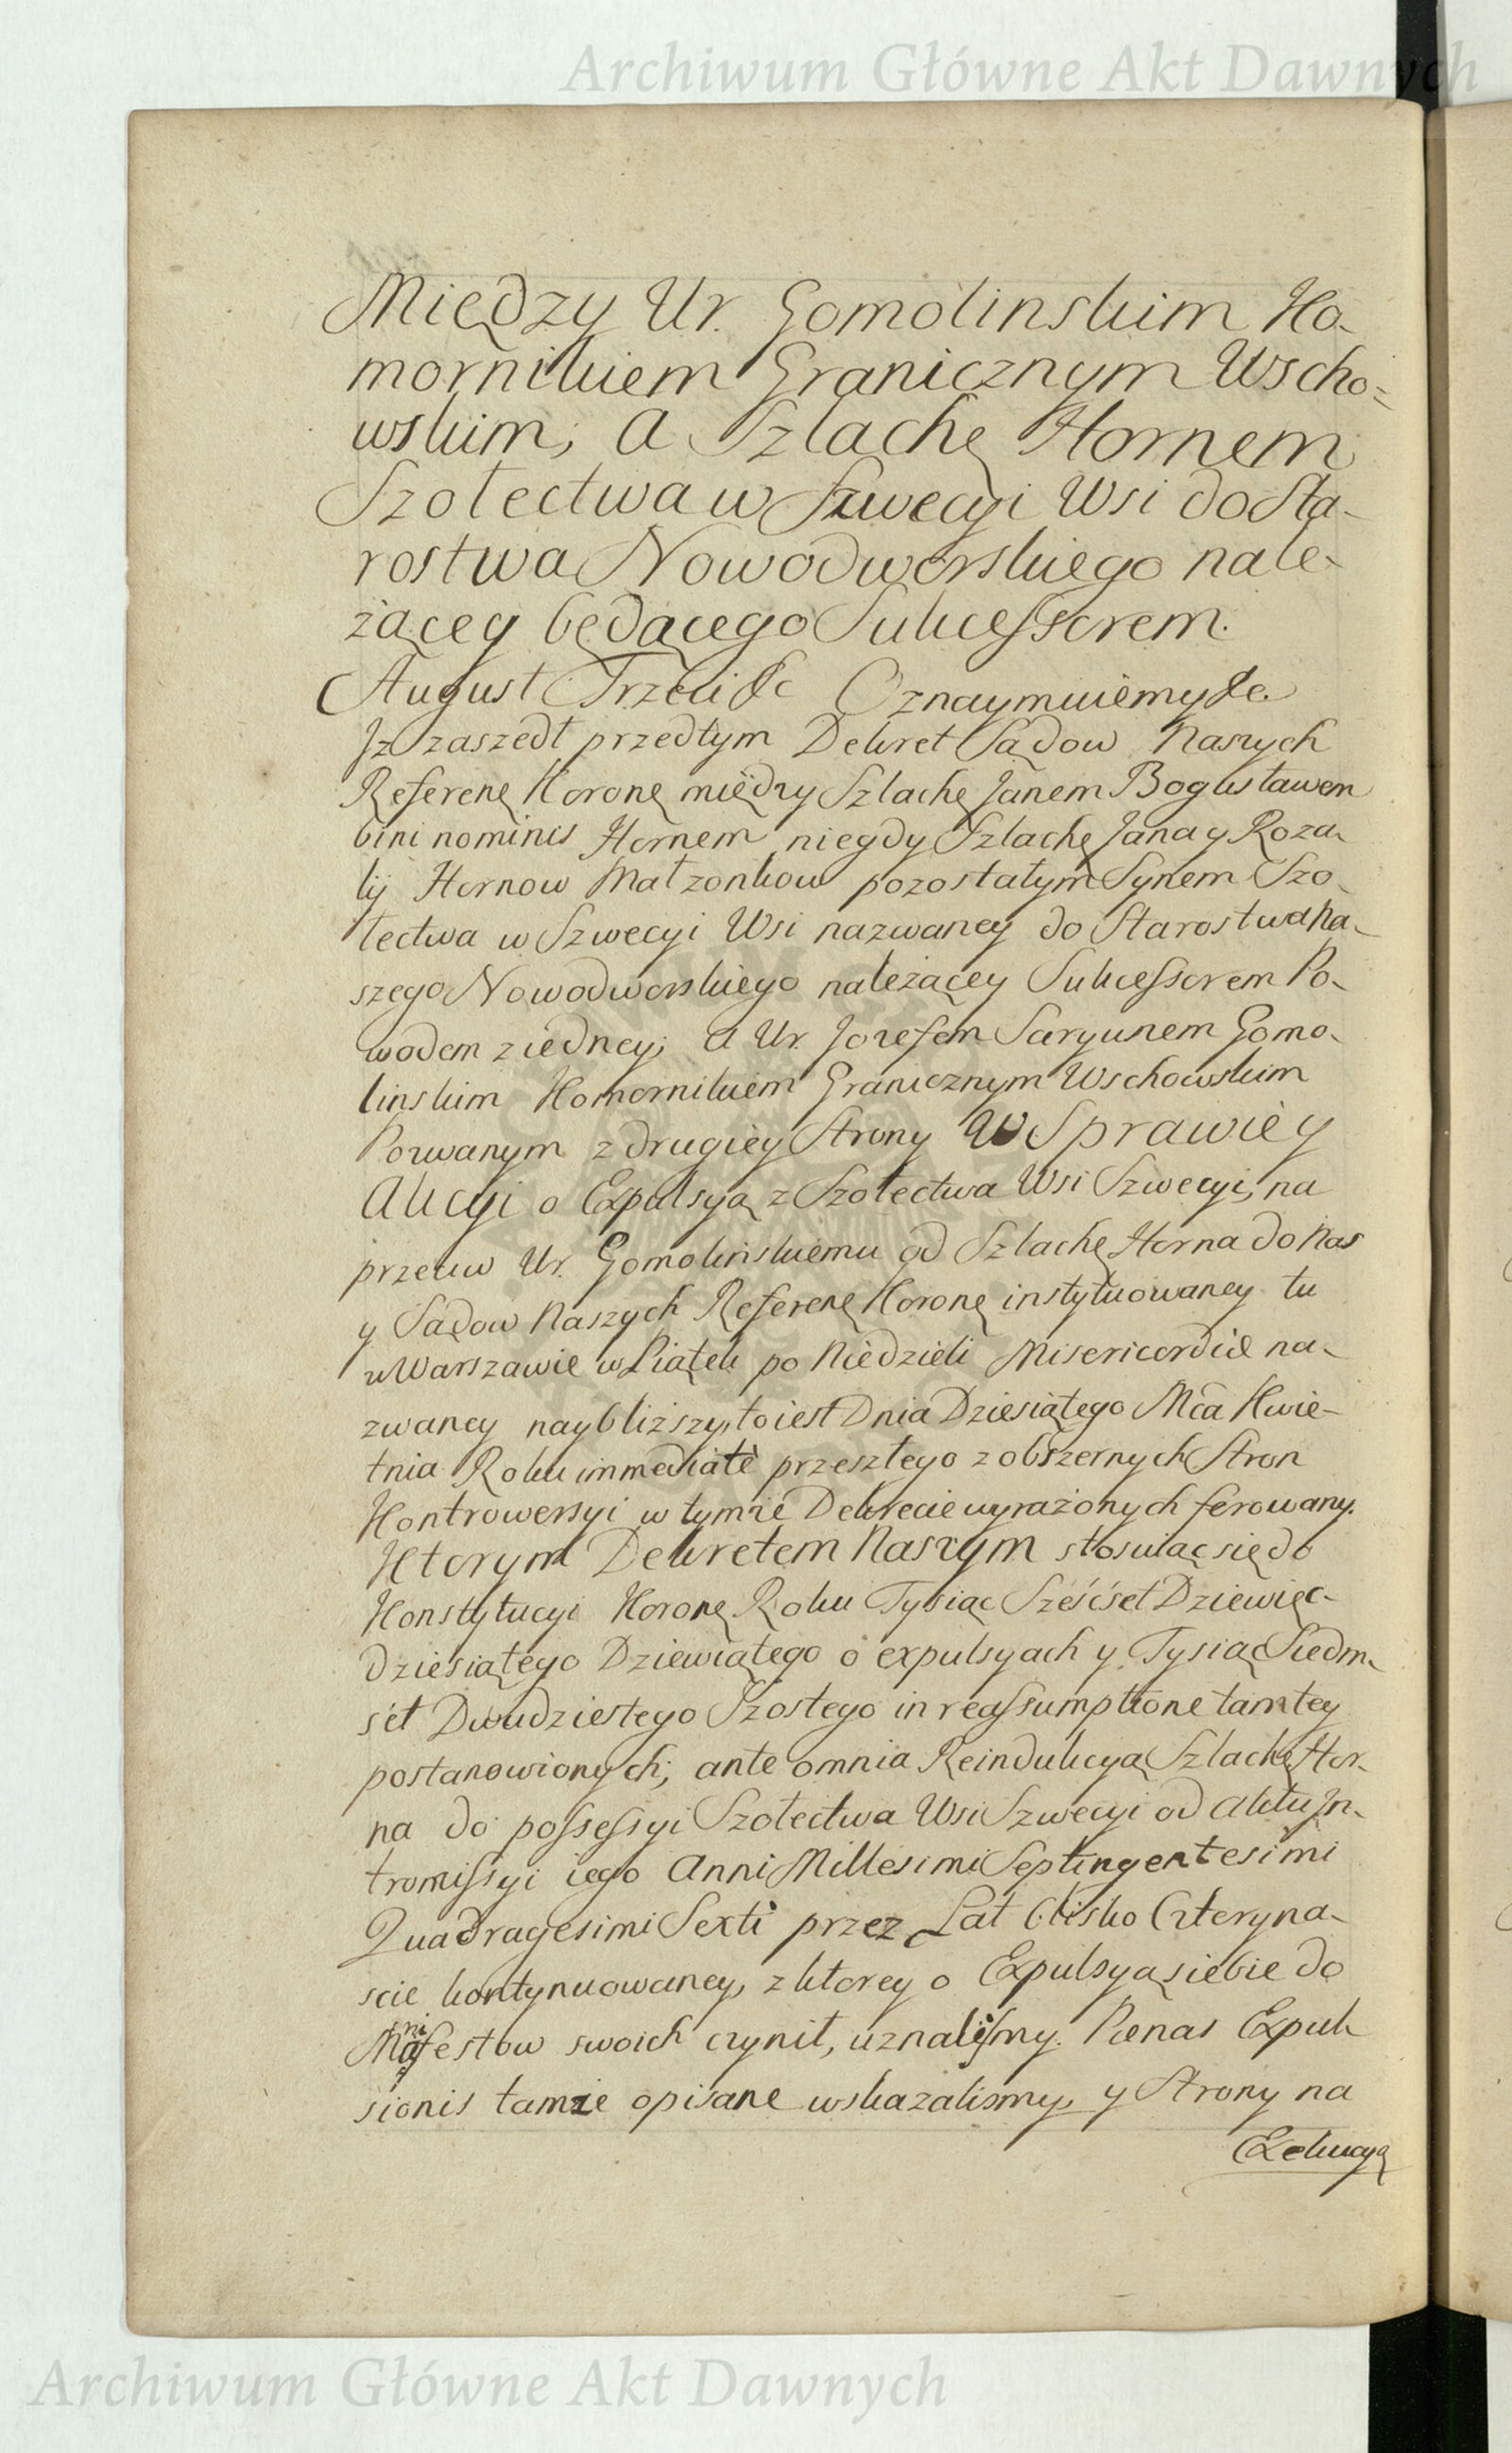 Archiwum Główne Akt Dawnych
Między Ur. Gomolinskim Ko-
mornikiem Granicznym Wscho-
wskim, a Szlachę Hornem
Szołectwa w Szwecyi Wsi do Sta-
rostwa Nowodworskiego nale-
żącey będącego Sukcessorem.
August Trzeci &c Oznaymuiemy &c.
Jz zaszedł przedtym Dekret Sądow Naszych
Referenę Koronę między Szlachę Janem Bogusławem
bini nominis Hornem niegdy Szlachę Jana y Roza-
lij Hornow Małzonkow pozostałym Synem Szo-
łectwa w Szwecyi Wsi nazwaney do Starostwa Na-
szego Nowodworskiego należącey Sukcessorem Po-
wodem z iedney; a Ur. Jozefem Saryuszem Gomo-
linskim Komornikiem Granicznym Wschowskim
Pozwanym z drugiey Strony W Sprawie y
Akcyi o Expulsyą z Szołectwa Wsi Szwecyi, na
przeciw Ur. Gomolińskiemu od Szlachę Horna do Nas
y Sądow Naszych Referenę Koronę instytuowaney tu
w Warszawie w Piątek po Niedzieli Misericordiæ na-
zwaney naybliższy, to iest Dnia Dziesiątego Mca Kwie-
tnia Roku immediatè przeszłego z obszernych Stron
Kontrowersyi w tymże Dekrecie wyrażonych ferowany.
Ktorym Dekretem Naszym stosuiąc się do
Konstytucyi Koronę Roku Tysiąc Sześćset Dziewięc-
dziesiątego Dziewiątego o expulsyach y Tysiąc Siedm-
set Dwudziestego Szostego in reassumptione tamtey
postanowionych; ante omnia Reindukcyą Szlachę Hor-
na do possessyi Szołectwa Wsi Szwecyi od Aktu In-
tromissyi iego Anni Millesimi Septingentesimi
Quadragesimi Sexti przez Lat blisko Czteryna-
scie kontynuowaney, z ktorey o Expulsyą siebie do
Manifestow swoich czynił, uznaliśmy. Pœnas Expul-
sionis tamże opisane wskazalismy, y Strony na
Exekucyą
Archiwum Główne Akt Dawnych